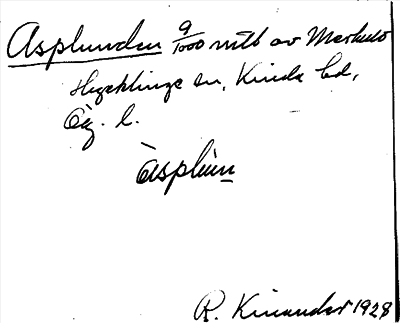 Asplunden 9/1000 mtl av Markebo
Hycklinge sn, Kinda hd,
Ög. l.
àsplùn
R. Kinander 1928